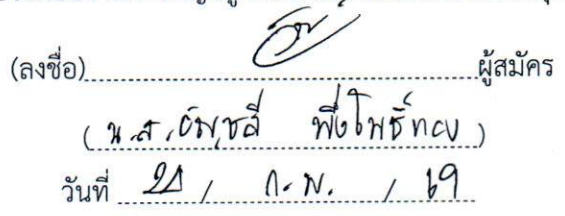 (ลงชื่อ)........................................ผู้สมัคร
( น.ส. อัญชลี พึ่งโพธิ์ทอง )
วันที่ / ก.พ. / 69